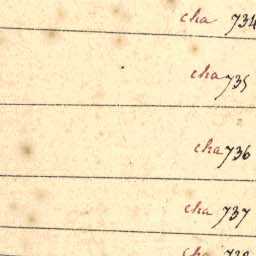 cha 734
cha 735
cha 736
cha 737
cha 738